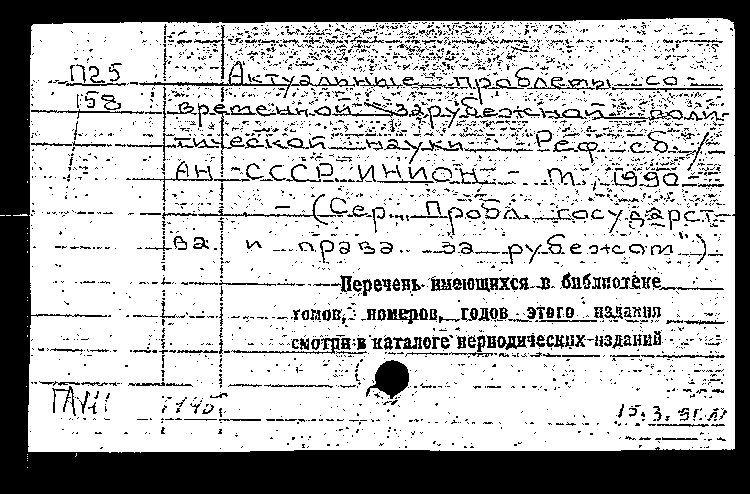 П25 Актуальные проблемы со-
58 временной зарубежной поли-
тической науки: Реф. сб. /
АН СССР. ИНИОН, - М., 1990
- (Сер. "Пробл. государст-
ва и права за рубежом")
Перечень имеющихся в библиотеке
томов, номеров, годов этого издания
смотри в каталоге периодических изданий
145 15.3.91